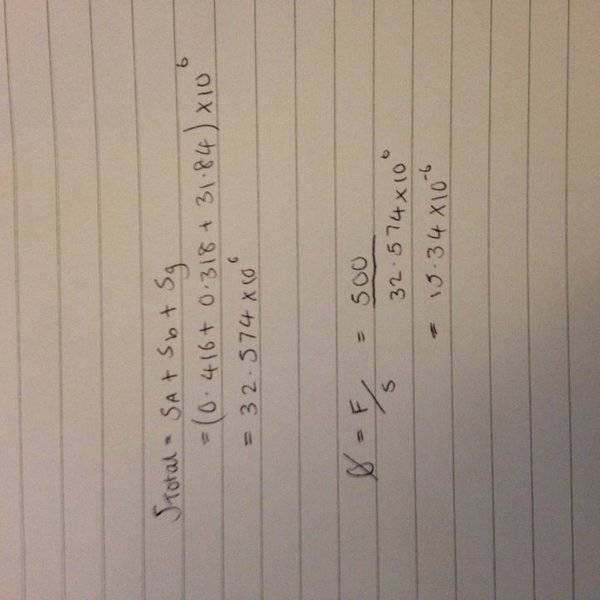 STotal = SA + Sb + Sg
= (0.416 + 0.318 + 31.84) x10⁶
= 32.574 x10⁶
Ø = F/S = 500
32.574 x10⁶
= 15.34 x10⁻⁶